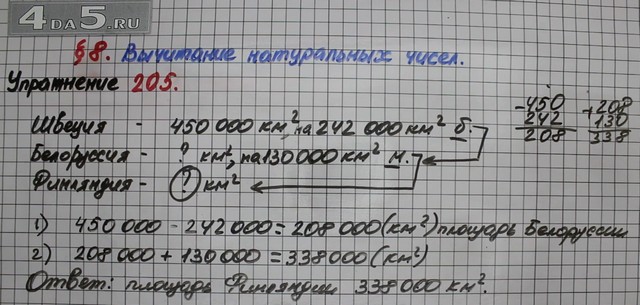 4DA5.RU
§8. Вычитание натуральных чисел.
Упражнение 205.
Швеция - 450 000 км², на 242 000 км² б.
Белоруссия - ? км², на 130 000 км² м.
Финляндия - ? км²
- 450
242
208
+ 208
130
338
1) 450 000 - 242 000 = 208 000 (км²) площадь Белоруссии
2) 208 000 + 130 000 = 338 000 (км²)
Ответ: площадь Финляндии 338 000 км².